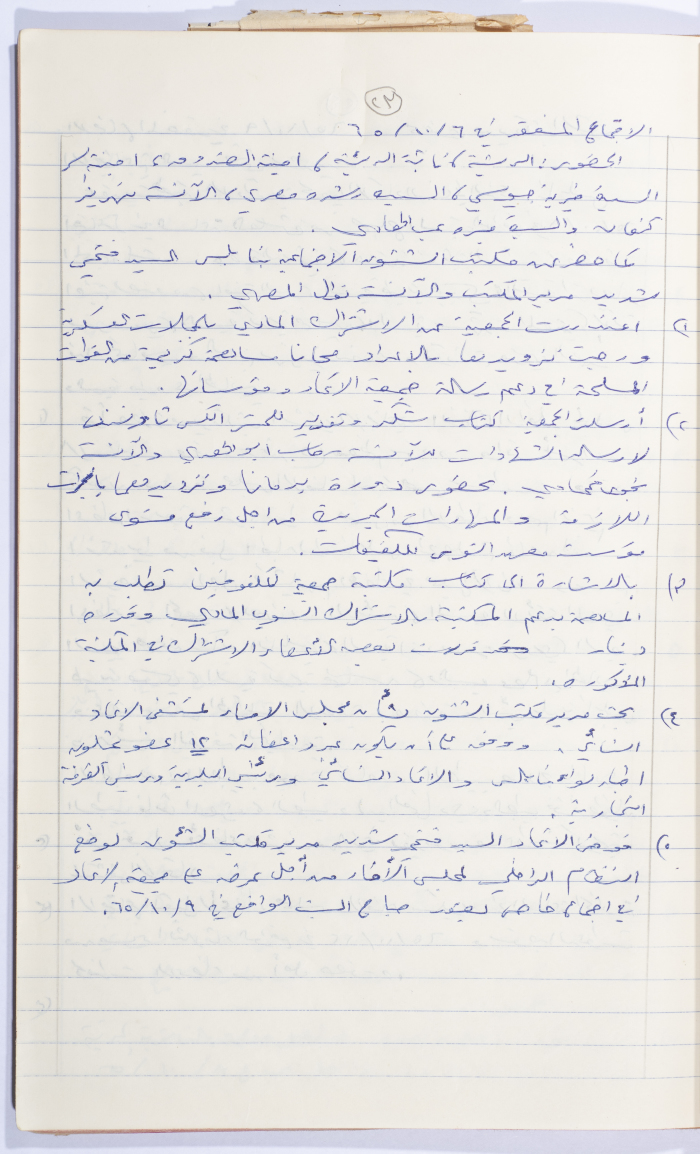 ٢٣
الاجتماع المنعقد في ٦ / ١٠ / ٦٥
الحضور: الرئيسة، نائبة الرئيسة، امينة الصندوق، امينة السر
السيدة خيرية، السيدة رشده مصري، الآنسة
كنعان والسيدة عبد الهادي.
كما حضر عن مكتب الشئون الاجتماعية بنابلس السيد فتحي
شديد مدير المكتب والآنسة نوال المصري.
١) اعتذرت الجمعية عن الاشتراك المادي بالمجلات العسكرية
ورجت تزويدها بالاعداد مجانا مساهمة كريمة من القوات
المسلحة في دعم رسالة جمعية الاتحاد ومؤسساتها.
٢) أرسلت الجمعية كتاب شكر وتقدير للمستر الكس
لارساله الشهادات للآنسة رحاب ابو الهدى والآنسة
نجوى. بحضور دورة برمانا وتزويدهما بالخبرات
اللازمة والمهارات من اجل رفع مستوى
مؤسسة معهد النور للكفيفات.
٣) بالاشارة الى كتاب مكتبة جمعية المكفوفين تطلب به
المساهمة بدعم المكتبة بالاشتراك السنوي المادي وقدره
دينار قررت بعض الأعضاء الاشتراك في المكتبة
المذكورة.
٤) بحث مدير مكتب الشئون بشأن مجلس الامناء لمستشفى الاتحاد
النسائي. ووفق على أن يكون عدد اعضائه ١٢ عضو يمثلون
اطباء لواء نابلس والاتحاد النسائي ورئيس البلدية ورئيس الغرفة
التجارية.
٥) فوض الاتحاد السيد فتحي شديد مدير مكتب الشئون لوضع
النظام الداخلي لمجلس الأمناء من أجل عرضه على جمعية الاتحاد
في اجتماع خاص يعقد صباح السبت الواقع في ٩ / ١٠ / ٦٥.